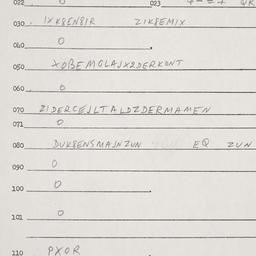 022 0 023
030 IXK8EN8IR ZIK8EMIX
040 0
050 XOBEMGLAJXRDERKONT
060 0
070 ZIDERCEJLTALDZDERMAMEN
071 0
080 DUK8ENSMAJNZUN EQ ZUN
090 0
100 0
101 0
110 PXOR